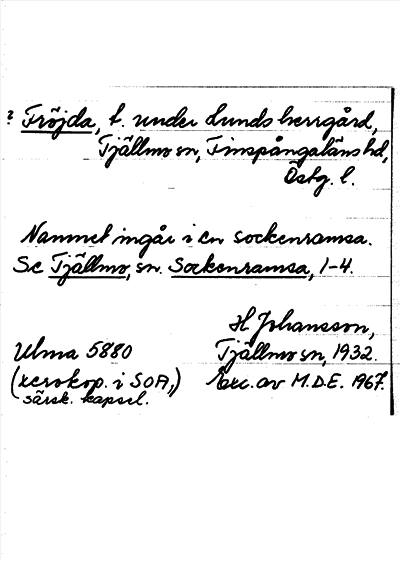 ? Fröjda, t. under Lunds herrgård,
Tjällmo sn, Finspångaläns hd,
Östg. l.
Namnet ingår i en sockenramsa.
Se Tjällmo, sn. Sockenramsa, 1-4.
H Johansson,
Ulma 5880
Tjällmo sn, 1932.
(xerokop. i SOA,)
särsk. kapsel.
Exc. av M.D.E. 1967.